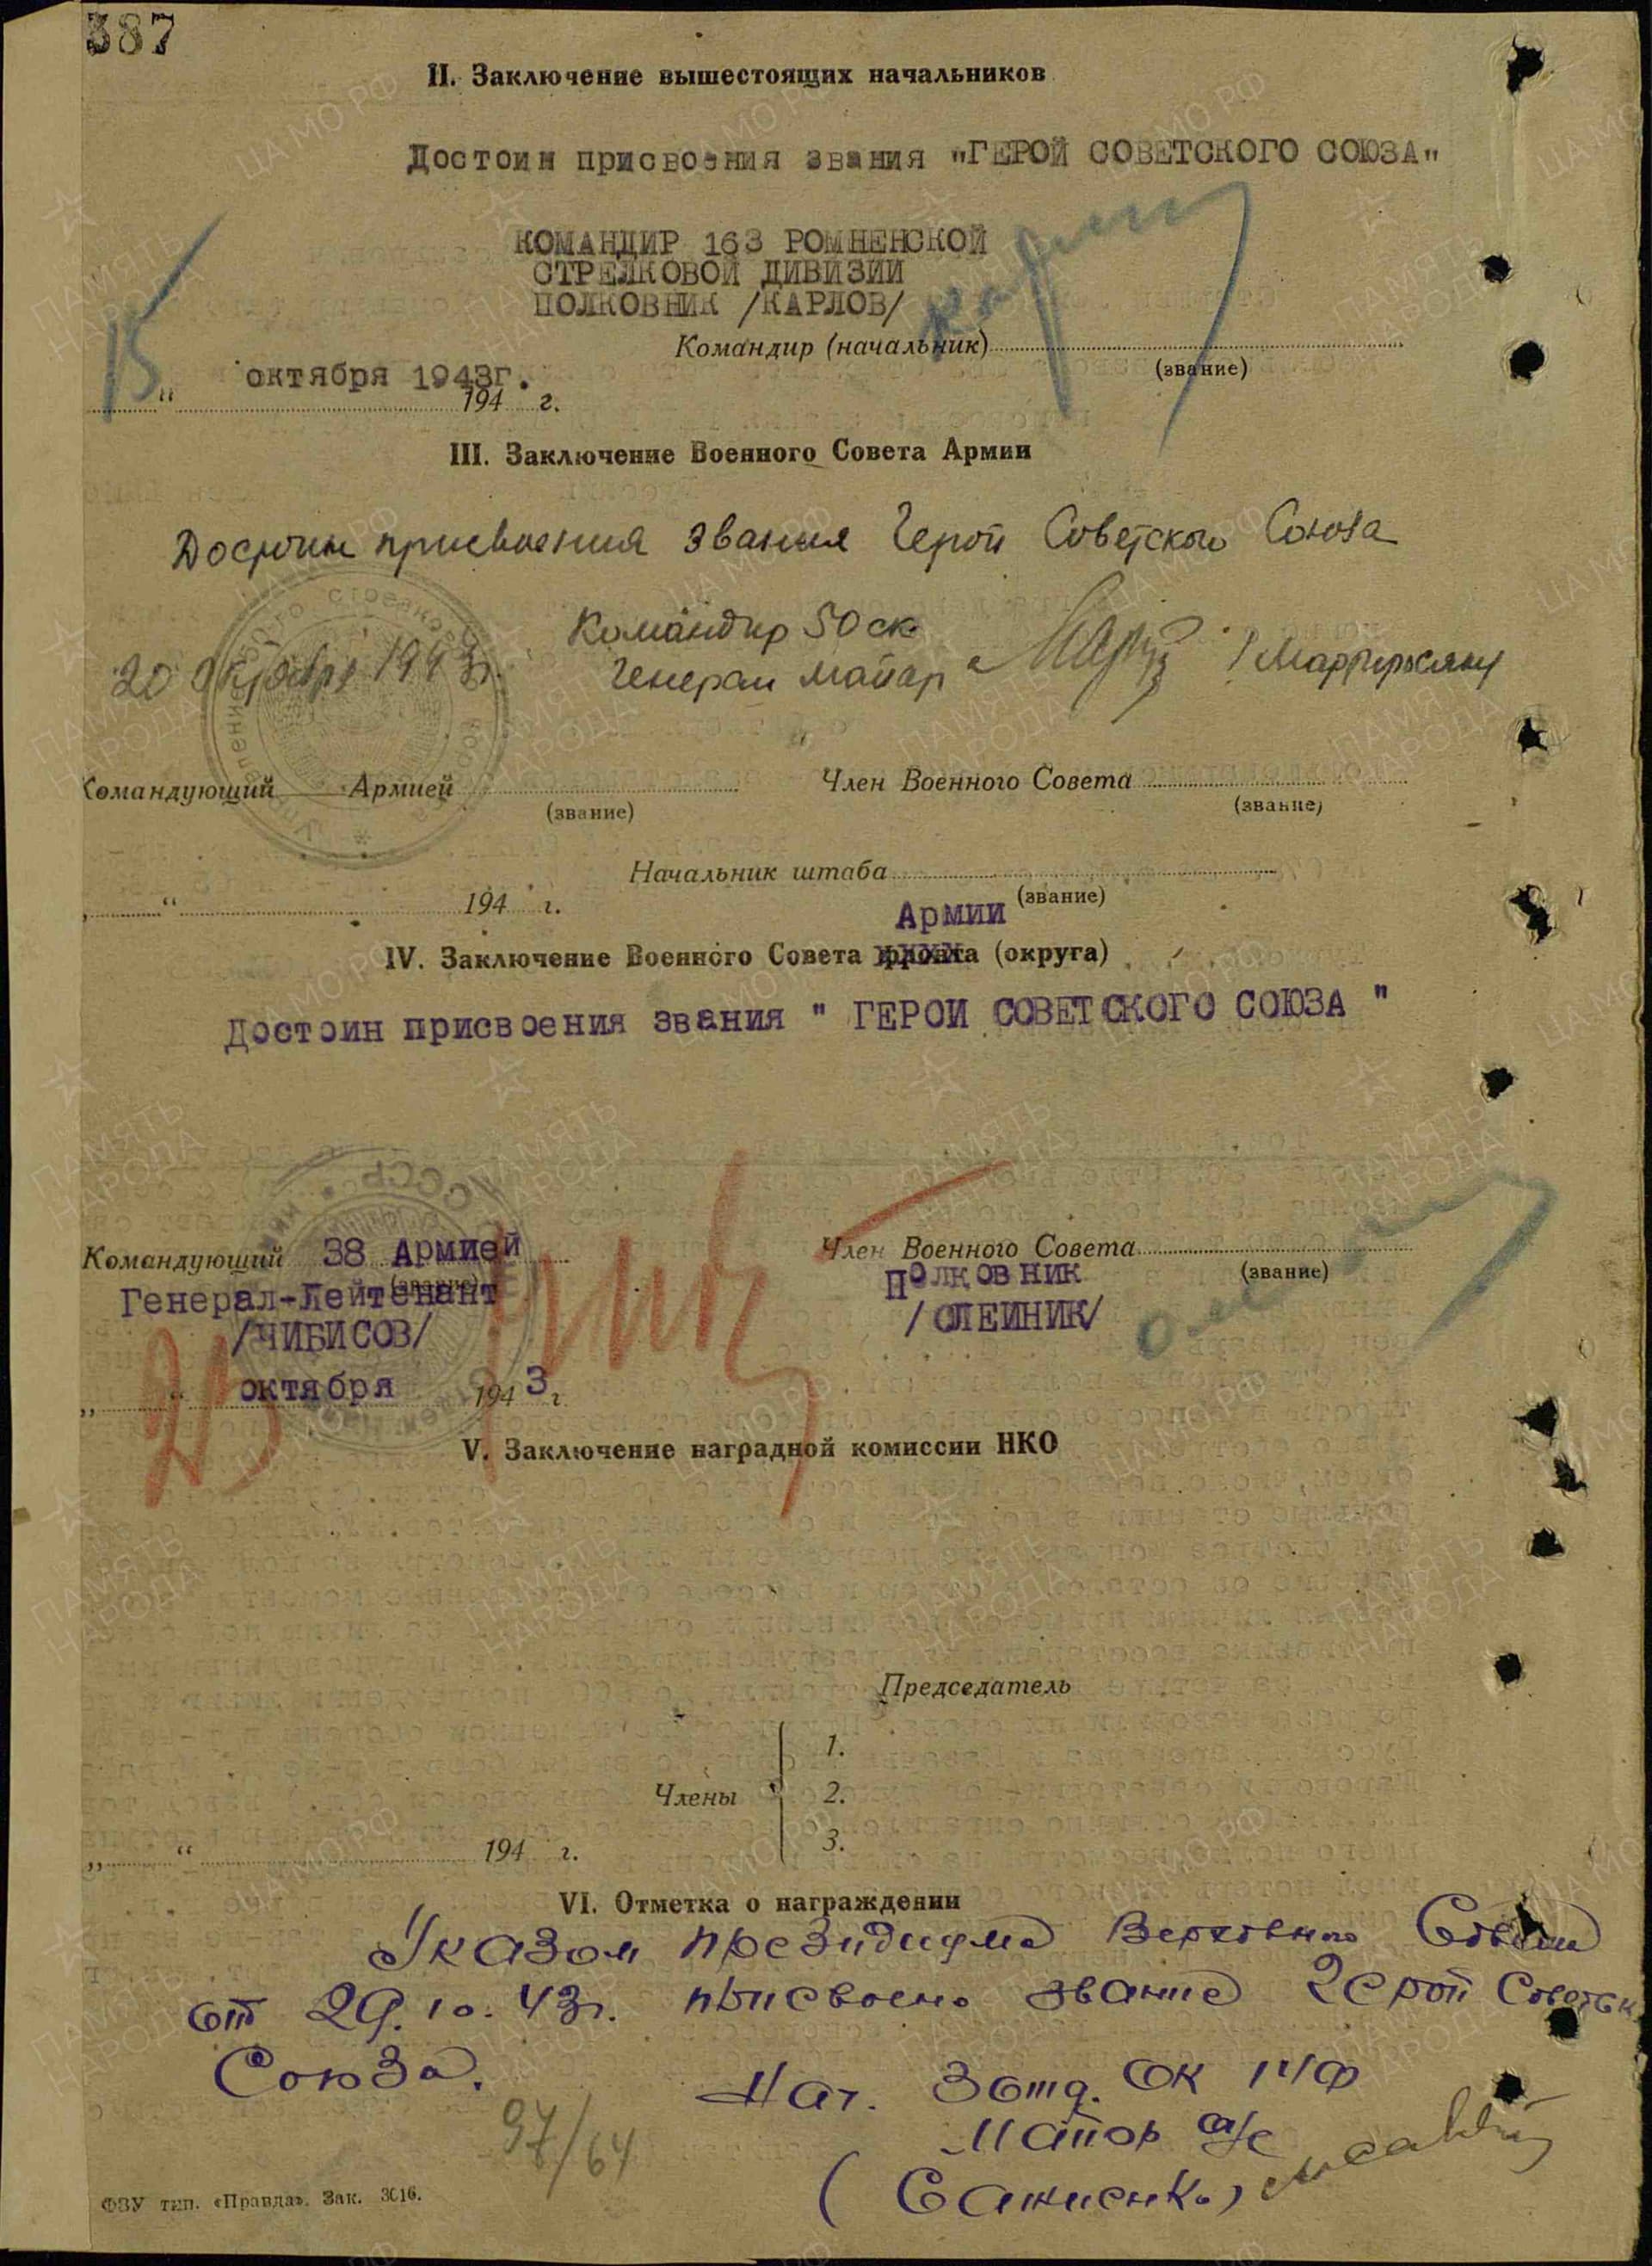 387
II. Заключение вышестоящих начальников
Достоин присвоения звания "ГЕРОЙ СОВЕТСКОГО СОЮЗА"
КОМАНДИР 163 РОМНЕНСКОЙ
СТРЕЛКОВОЙ ДИВИЗИИ
ПОЛКОВНИК /КАРЛОВ/
Командир (начальник)
(звание)
15 " октября 1943г.
194 г.
III. Заключение Военного Совета Армии
Достоин присвоения звания Герой Советского Союза
Командир 50 ск
20 октября 1943г. Генерал майор
Командующий Армией
(звание)
Член Военного Совета
(звание)
Начальник штаба
(звание)
" " 194 г.
Армии
IV. Заключение Военного Совета фронта (округа)
Достоин присвоения звания " ГЕРОИ СОВЕТСКОГО СОЮЗА "
Командующий 38 Армией
(звание)
Генерал-Лейтенант
/ЧИБИСОВ/
Член Военного Совета
(звание)
Полковник
/ОЛЕЙНИК/
25 " октября 1943 г.
V. Заключение наградной комиссии НКО
Председатель
Члены
1.
2.
3.
" " 194 г.
VI. Отметка о награждении
Указом президиума Верховного Совета
от 29.10.43г. присвоено звание Герой Советск
Союза.
Нач. 3 отд. ОК 1 УФ
Майор а/с
97/64
ФЗУ тип. «Правда». Зак. 3016.
ПАМЯТЬ НАРОДА
ЦА МО РФ